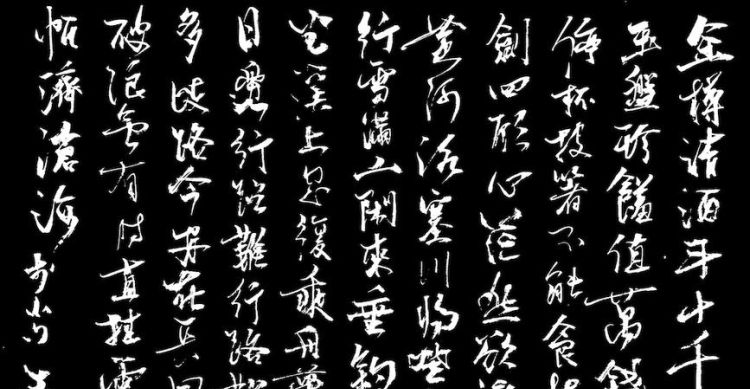 金樽清酒斗十千
玉盤珍饈值萬錢
停杯投箸不能食
劍四顧心茫然欲
黃河冰塞川將登
行雪滿山閑來垂釣
坐溪上忽復乘舟夢
日邊行路難行路難
多歧路今安在長風
破浪會有時直掛雲
帆濟滄海